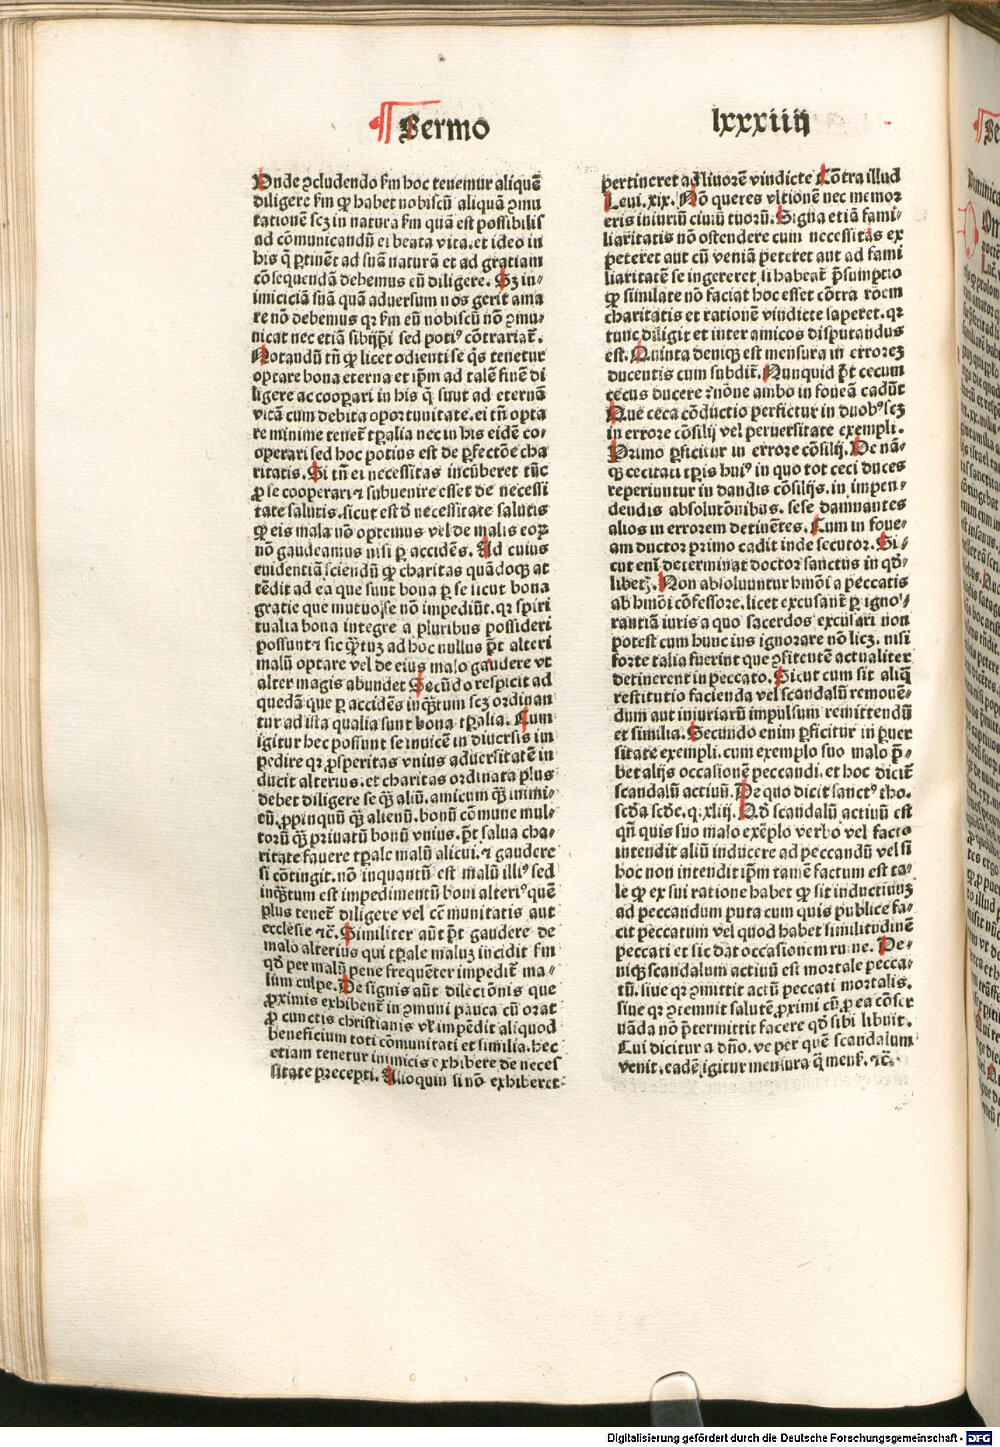 Sermo
lxxxiiij
Unde ꝯcludendo ẜm hoc tenemur aliquē
diligere ẜm ꝙ habet nobiscū aliquā ꝯmu
tationē scꝫ in natura ẜm quā est possibilis
ad cōmunicandū ei beata vita. et ideo in
his q̄ ꝑtinēt ad suā naturā et ad gratiam
cōsequendā debemus eū diligere. Sꝫ in⸗
imiciciā suā quā aduersum nos gerit ama
re nō debemus qꝛ ẜm eū nobiscū nō ꝯmu⸗
nicat nec etiā sibijp̄i sed potiꝰ cōtrariat̄.
Notandū tn̄ ꝙ licet odienti se q̄s tenetur
optare bona eterna et ip̄m ad talē finē di
ligere ac cooꝑari in his q̄ sunt ad eternā
vitā cum debita oportunitate. ei tn̄ opta
re minime tenet̄ tꝑalia nec in his eidē co⸗
operari sed hoc potius est de ꝑfectōe cha
ritatis. Si tn̄ ei necessitas incūberet tūc
ꝓ se cooperari ⁊ subuenire esset de necessi
tate salutis. sicut est ď necessitate salutis
ꝙ eis mala nō optemus vel de malis eoꝝ
nō gaudeamus nisi ꝑ accidēs. Ad cuius
euidentiā sciendū ꝙ charitas quādoqꝫ at
tēdit ad ea que sunt bona ꝑ se sicut bona
gratie que mutuo se nō impediūt. qꝛ spiri
tualia bona integre a pluribus possideri
possunt ⁊ sic q̄tuꝫ ad hoc nullus p̄t alteri
malū optare vel de eius malo gaudere vt
alter magis abundet Secūdo respicit ad
quedā que ꝑ accidēs inq̄tum scꝫ ordinan
tur ad ista qualia sunt bona tꝑalia. Cum
igitur hec possunt se inuicē in diuersis im
pedire qꝛ ꝓsperitas vnius aduersitatē in
ducit alterius. et charitas ordinata plus
debet diligere se q̄ꝫ aliū. amicum q̄ꝫ inimi⸗
cū. ꝓpinquū q̄ꝫ alienū. bonū cōmune mul⸗
torū q̄ꝫ priuatū bonū vnius. p̄t salua cha⸗
ritate fauere tꝑale malū alicui. ⁊ gaudere
si cōtingit. nō inquantū est malū illiꝰ sed
inq̄tum est impedimentū boni alteriꝰ quē
plus tenet̄ diligere vel cōmunitatis aut
ecclesie ⁊c̄. Similiter aūt p̄t gaudere de
malo alterius qui tꝑale maluꝫ incidit ẜm
qď per malū pene frequēter impedit̄ ma⸗
lum culpe. De signis aūt dilectōnis que
ꝓximis exhibent̄ in ꝯmuni pauca cū orat
ꝓ cunctis christianis vl̄ impēdit aliquod
beneficium toti cōmunitati et similia. hec
etiam tenetur inimicis exhibere de neces
sitate precepti. Alioquin si nō exhiberet
pertineret ad liuorē vindicte Cōtra illud
Leui. xix. Nō queres vltionē nec memor
eris iniuriū ciuiū tuorū. Signa etiā fami⸗
liaritatis nō ostendere cum necessitas ex
peteret aut cū veniā peteret aut ad fami
liaritatē se ingereret. si habeat p̄sumptio
ꝙ similate nō faciat hoc esset cōtra rōem
charitatis et rationē vindicte saperet. qꝛ
tunc diligit et inter amicos disputandus
est. Quinta deniqꝫ est mensura in erroreꝫ
ducentis cum subdit̄. Nunquid p̄t cecum
cecus ducere ⁊nōne ambo in foueā cadūt
Que ceca cōductio perficitur in duobꝰ scꝫ
in errore cōsilij vel peruersitate exempli.
Primo ꝑficitur in errore cōsilij. De nā⸗
qꝫ cecitati tꝑis huiꝰ in quo tot ceci duces
reperiuntur in dandis cōsilijs. in impen⸗
dendis absolutōnibus. sese damnantes
alios in errorem detinētes. Cum in foue⸗
am ductor primo cadit inde secutor. Si⸗
cut eni determinat doctor sanctus in qď⸗
libetꝫ. Non absoluuntur hmōi a peccatis
ab hmōi cōfessore. licet excusant̄ ꝑ igno⸗
rantiā iuris a quo sacerdos excusari non
potest cum hunc ius ignorare nō licꝫ. nisi
forte talia fuerint que ꝯfitentē actualiter
detinerent in peccato. Sicut cum sit aliq̄
restitutio facienda vel scandalū remouē⸗
dum aut iniuriarū impulsum remittendū
et similia. Secundo enim ꝑficitur in ꝑuer
sitate exempli. cum exemplo suo malo p̄⸗
bet alijs occasionē peccandi. et hoc dicit̄
scandalū actiuū. De quo dicit sanctꝰ tho.
scďa scďe. q. xliij. Qď scandalū actiuū est
qn̄ quis suo malo exēplo verbo vel facto
intendit aliū inducere ad peccandū vel si
hoc non intendit ip̄m tamē factum est ta⸗
le ꝙ ex sui ratione habet ꝙ sit inductiuuꝫ
ad peccandum puta cum quis publice fa⸗
cit peccatum vel quod habet similitudinē
peccati et sic dat occasionem ruine. De⸗
niqꝫ scandalum actiuū est mortale pecca⸗
tū. siue qꝛ ꝯmittit actū peccati mortalis.
siue qꝛ ꝯtemnit salutē ꝓximi cū ꝓ ea cōser
uāda nō p̄termittit facere qď sibi libuit.
Cui dicitur a dn̄o. ve per quē scandalum
venit. eadē igitur mensura q̄ mens̄. ⁊c̄.
Digitalisierung gefördert durch die Deutsche Forschungsgemeinschaft - DFG